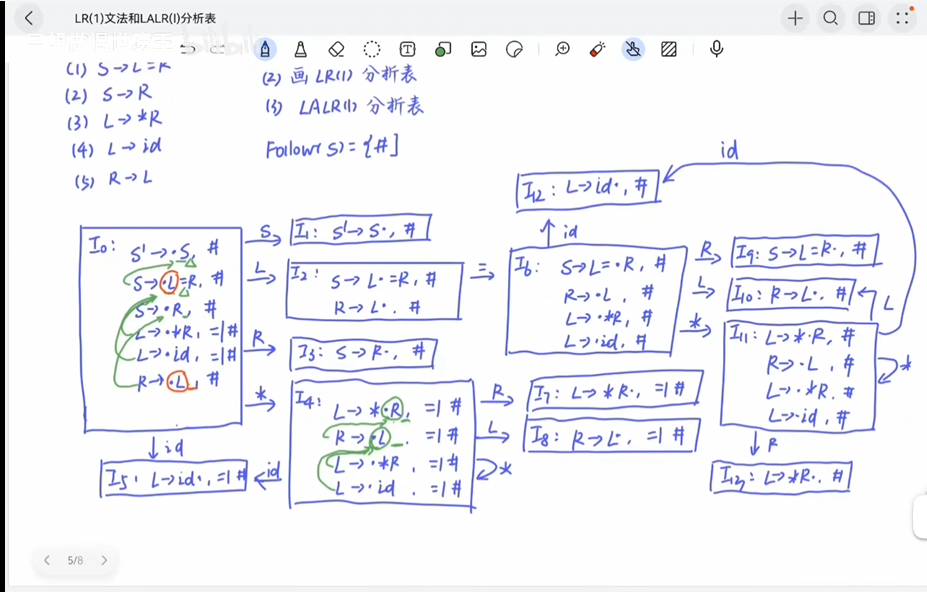 LR(1)文法和LALR(l)分析表
(1) S→L=R
(2) S→R
(3) L→*R
(4) L→id
(5) R→L
(2) 画LR(1) 分析表
(3) LALR(1) 分析表
Follow(S)={#}
I0: S'→·S, #
S→·L=R, #
S→·R, #
L→·*R, =|#
L→·id, =|#
R→·L, #
S
I1: S'→S·, #
L
I2: S→L·=R, #
R→L·, #
R
I3: S→R·, #
*
I4: L→*·R, =|#
R→·L, =|#
L→·*R, =|#
L→·id, =|#
id
I5: L→id·, =|#
id
*
=
I6: S→L=·R, #
R→·L, #
L→·*R, #
L→·id, #
R
I7: L→*R·, =|#
L
I8: R→L·, =|#
id
I12: L→id·, #
id
R
I9: S→L=R·, #
L
I10: R→L·, #
L
*
I11: L→*·R, #
R→·L, #
L→·*R, #
L→·id, #
*
R
I13: L→*R·, #
5/8